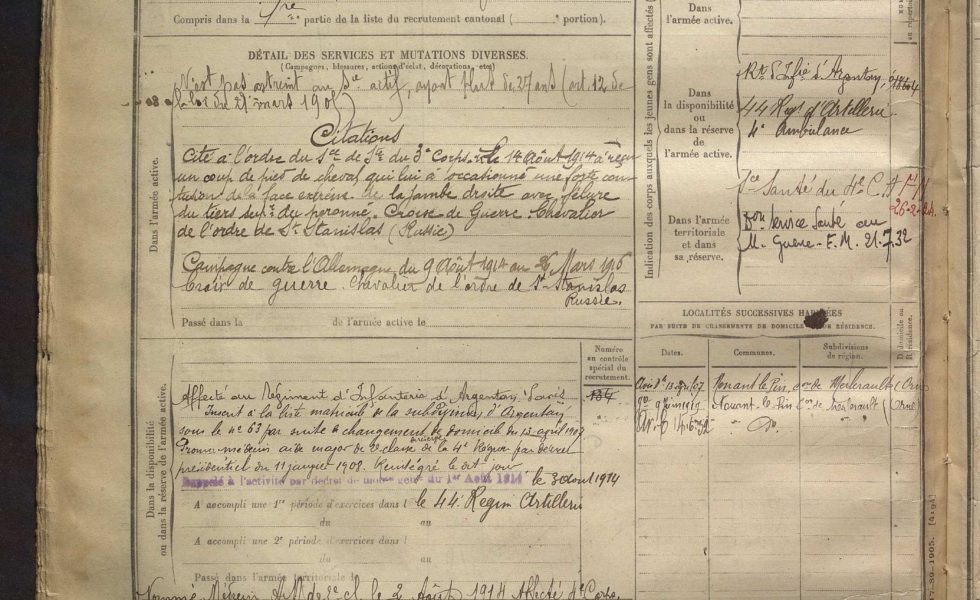 Compris dans la 1re partie de la liste du recrutement cantonal ( e portion).
DÉTAIL DES SERVICES ET MUTATIONS DIVERSES.
(Campagnes, blessures, actions d'éclat, décorations, etc.)
N'est pas astreint au Sce actif, ayant plus de 27 ans (art. 12 de
la loi du 21 mars 1905)
Citations
Cité à l'ordre du Sce de Sté du 3e Corps. le 14 Août 1914 a reçu
un coup de pied de cheval qui lui a occasionné une forte con
tusion de la face externe de la jambe droite avec fêlure
du tiers supr du peronné. Croix de Guerre. Chevalier
de l'ordre de St Stanislas (Russie)
Campagne contre l'Allemagne du 9 Août 1914 au 26 Mars 1916
Croix de guerre. Chevalier de l'ordre de St Stanislas
Russie.
Passé dans la de l'armée active le
Dans l'armée active.
Numéro
au contrôle
spécial du
recrutement.
134
Affecté au Régiment d'Infanterie d'Argentan
Inscrit à la liste matricule de la subdivision d'Argentan
sous le no 63 par suite de changement de domicile du 13 avril 1907
Promu médecin aide major de 2e classe de la 4e Région par décret
présidentiel du 11 janvier 1908.
Rappelé à l'activité par décret de mobon génle du 1er Août 1914 le 3 aout 1914
A accompli une 1re période d'exercices dans l le 44e Regim Artillerie
du au
A accompli une 2e période d'exercices dans l
du au
Passé dans l'armée territoriale le
Nommé Médecin A.M. de 2e cl. le 2 Août 1914 Affecté
Dans la disponibilité
ou dans la réserve de l'armée active.
Indication des corps auxquels les jeunes gens sont affectés
Dans
l'armée active.
Dans
la disponibilité
ou dans la réserve
de l'armée active.
Rt d'Infie d'Argentan
44 Regt d'Artillerie
4e Ambulance
Dans l'armée
territoriale
et dans
sa réserve.
Sce Santé du 4e C. A
26-2-24
Don Service Santé au
M. Guerre - E.M. 21.7.32
LOCALITÉS SUCCESSIVES HABITÉES
PAR SUITE DE CHANGEMENTS DE DOMICILE OU DE RÉSIDENCE.
Dates.
Communes.
Subdivisions
de région.
Domicile ou
Résidence.
Nonant le Pin, con de Merlerault (Orne)
9 Juin 1912 Nonant-le-Pin con de Merlerault (Orne)
17-89-1905. [4194]